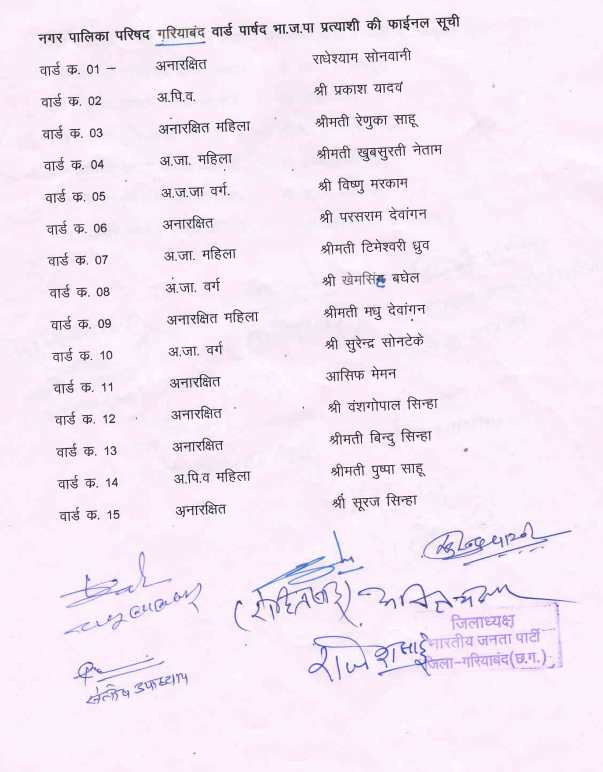 नगर पालिका परिषद गरियाबंद वार्ड पार्षद भा.ज.पा प्रत्याशी की फाईनल सूची
वार्ड क. 01 – अनारक्षित राधेश्याम सोनवानी
वार्ड क. 02 अ.पि.व. श्री प्रकाश यादव
वार्ड क. 03 अनारक्षित महिला श्रीमती रेणुका साहू
वार्ड क. 04 अ.जा. महिला श्रीमती खुबसुरती नेताम
वार्ड क. 05 अ.ज.जा वर्ग. श्री विष्णु मरकाम
वार्ड क. 06 अनारक्षित श्री परसराम देवांगन
वार्ड क. 07 अ.जा. महिला श्रीमती टिमेश्वरी ध्रुव
वार्ड क. 08 अ.जा. वर्ग श्री खेमसिंह बघेल
वार्ड क. 09 अनारक्षित महिला श्रीमती मधु देवांगन
वार्ड क. 10 अ.जा. वर्ग श्री सुरेन्द्र सोनटेके
वार्ड क. 11 अनारक्षित आसिफ मेमन
वार्ड क. 12 अनारक्षित श्री वंशगोपाल सिन्हा
वार्ड क. 13 अनारक्षित श्रीमती बिन्दु सिन्हा
वार्ड क. 14 अ.पि.व महिला श्रीमती पुष्पा साहू
वार्ड क. 15 अनारक्षित श्री सूरज सिन्हा
जिलाध्यक्ष
भारतीय जनता पार्टी
जिला-गरियाबंद(छ.ग.)
उपाध्याय